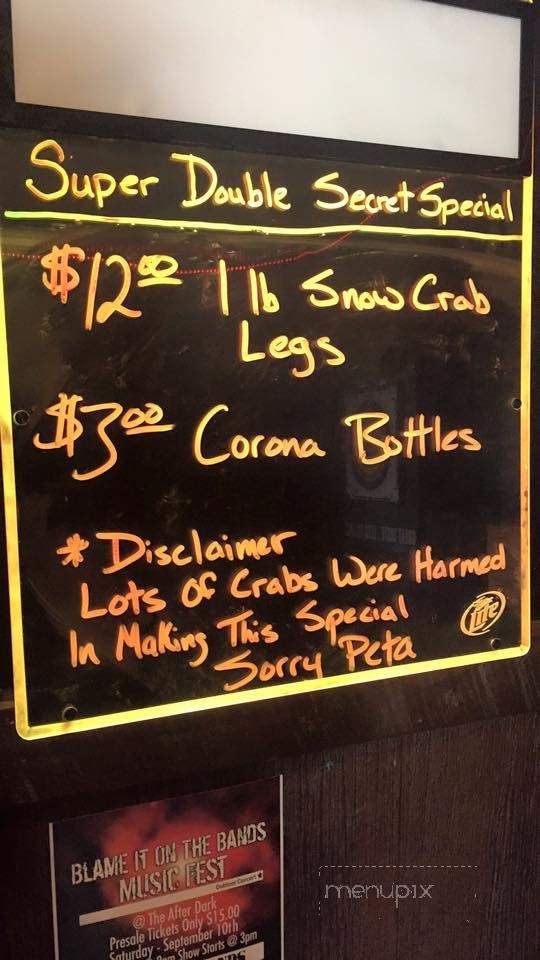 Super Double Secret Special
$12.00 1 lb Snow Crab
Legs
$3.00 Corona Bottles
* Disclaimer
Lots Of Crabs Were Harmed
In Making This Special
Sorry Peta
Lite
BLAME IT ON THE BANDS
MUSIC FEST
Outdoor Concert
@ The After Dark
Presale Tickets Only $15.00
Saturday - September 10th
pm Show Starts @ 3pm
menupix